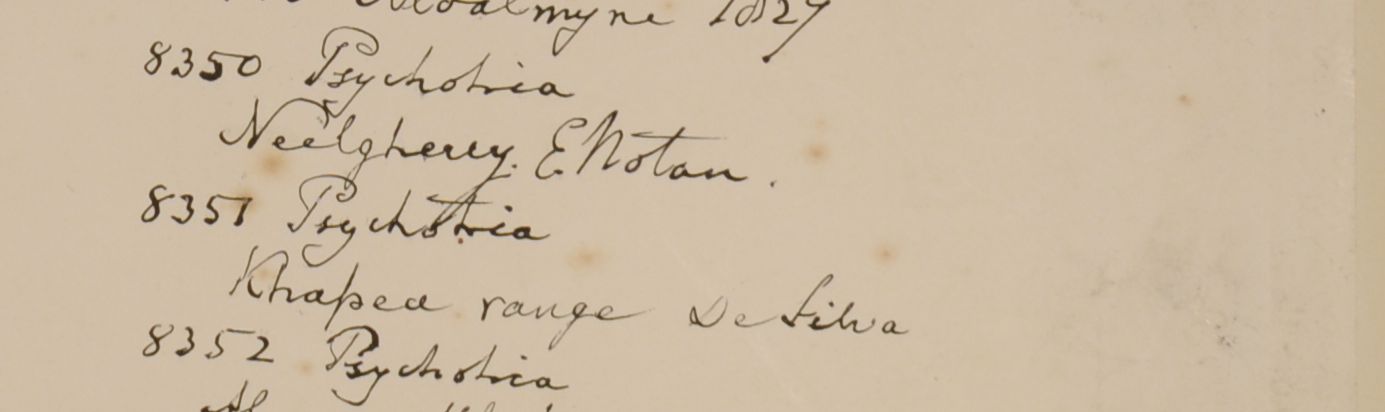 Moalmyne 1827
8350 Psychotria
Neelgherry. E Notan.
8351 Psychotria
Khapea range De Silva
8352 Psychotria